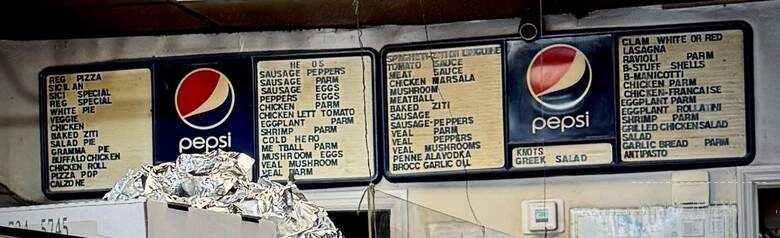 REG PIZZA
SICILIAN
SICI SPECIAL
REG SPECIAL
WHITE PIE
VEGGIE
CHICKEN
BAKED ZITI
SALAD PIE
GRAMMA PIE
BUFFALO CHICKEN
CHICKEN ROLL
PIZZA POP
CALZONE
pepsi
HE OS
SAUSAGE PEPPERS
SAUSAGE PARM
SAUSAGE EGGS
PEPPERS EGGS
CHICKEN PARM
CHICKEN LETT TOMATO
EGGPLANT PARM
SHRIMP PARM
COLD HERO
ME TBALL PARM
MUSHROOM EGGS
VEAL MUSHROOM
VEAL PARM
SPAGHETTI OR LINGUINE
TOMATO SAUCE
MEAT SAUCE
CHICKEN MARSALA
MUSHROOM
MEATBALL
BAKED ZITI
SAUSAGE
SAUSAGE-PEPPERS
VEAL PARM
VEAL PEPPARS
VEAL MUSHROOMS
PENNE ALAVODKA
BROCC GARLIC OIL
pepsi
KNOTS
GREEK SALAD
CLAM WHITE OR RED
LASAGNA
RAVIOLI PARM
B-STUFF SHELLS
B-MANICOTTI
CHICKEN PARM
CHICKEN-FRANCAISE
EGGPLANT PARM
EGGPLANT ROLLATINI
SHRIMP PARM
GRILLED CHICKEN SALAD
SALAD
GARLIC BREAD PARM
ANTIPASTO